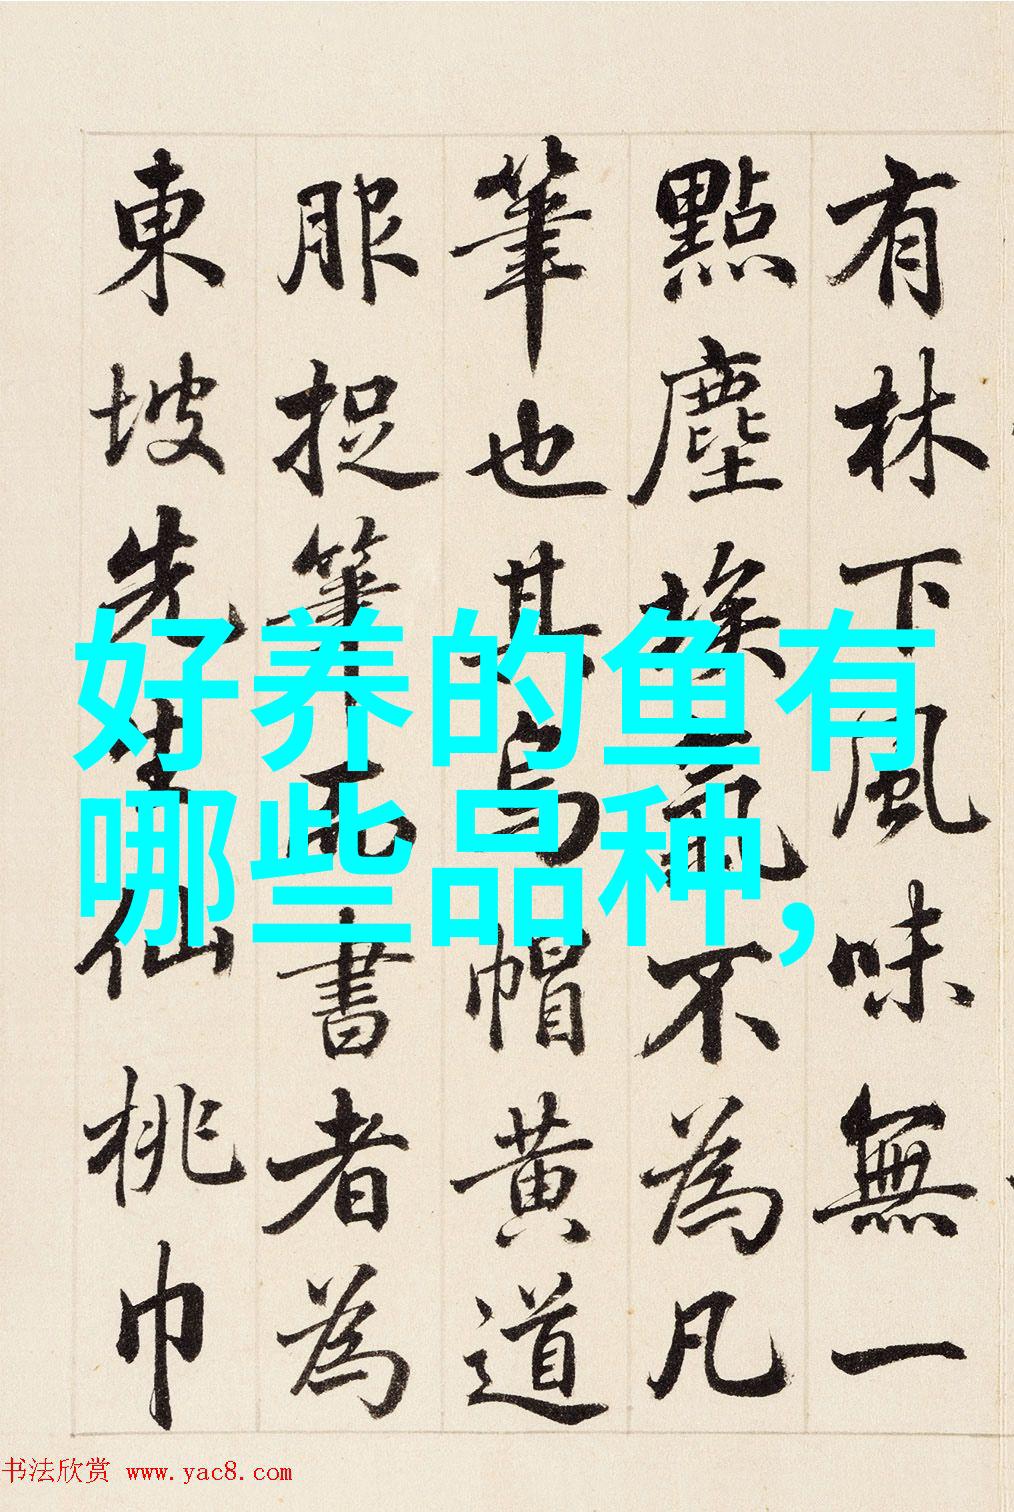 有林下風味無一
點塵埃氣不為凡
筆也其烏帽黃道
服捉筆而書者為
東坡先生仙桃巾
好养的鱼有
哪些品种,
书法欣赏 www.yac8.com